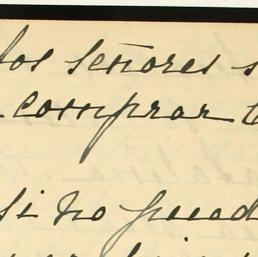 los señores
comprar
si no pued